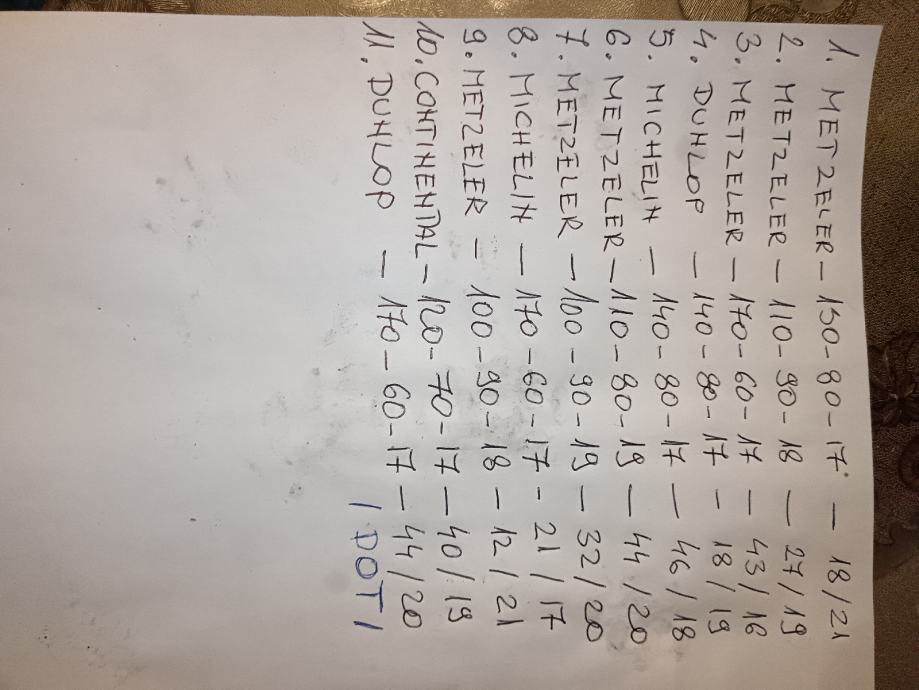 1. METZELER - 150-80-17 - 18/21
2. METZELER - 110-90-18 - 27/19
3. METZELER - 170-60-17 - 43/16
4. DUNLOP - 140-80-17 - 18/19
5. MICHELIN - 140-80-17 - 46/18
6. METZELER - 110-80-19 - 44/20
7. METZELER - 100-90-19 - 32/20
8. MICHELIN - 170-60-17 - 21/17
9. METZELER - 100-90-18 - 12/21
10. CONTINENTAL - 120-70-17 - 40/19
11. DUNLOP - 170-60-17 - 44/20
/DOT/